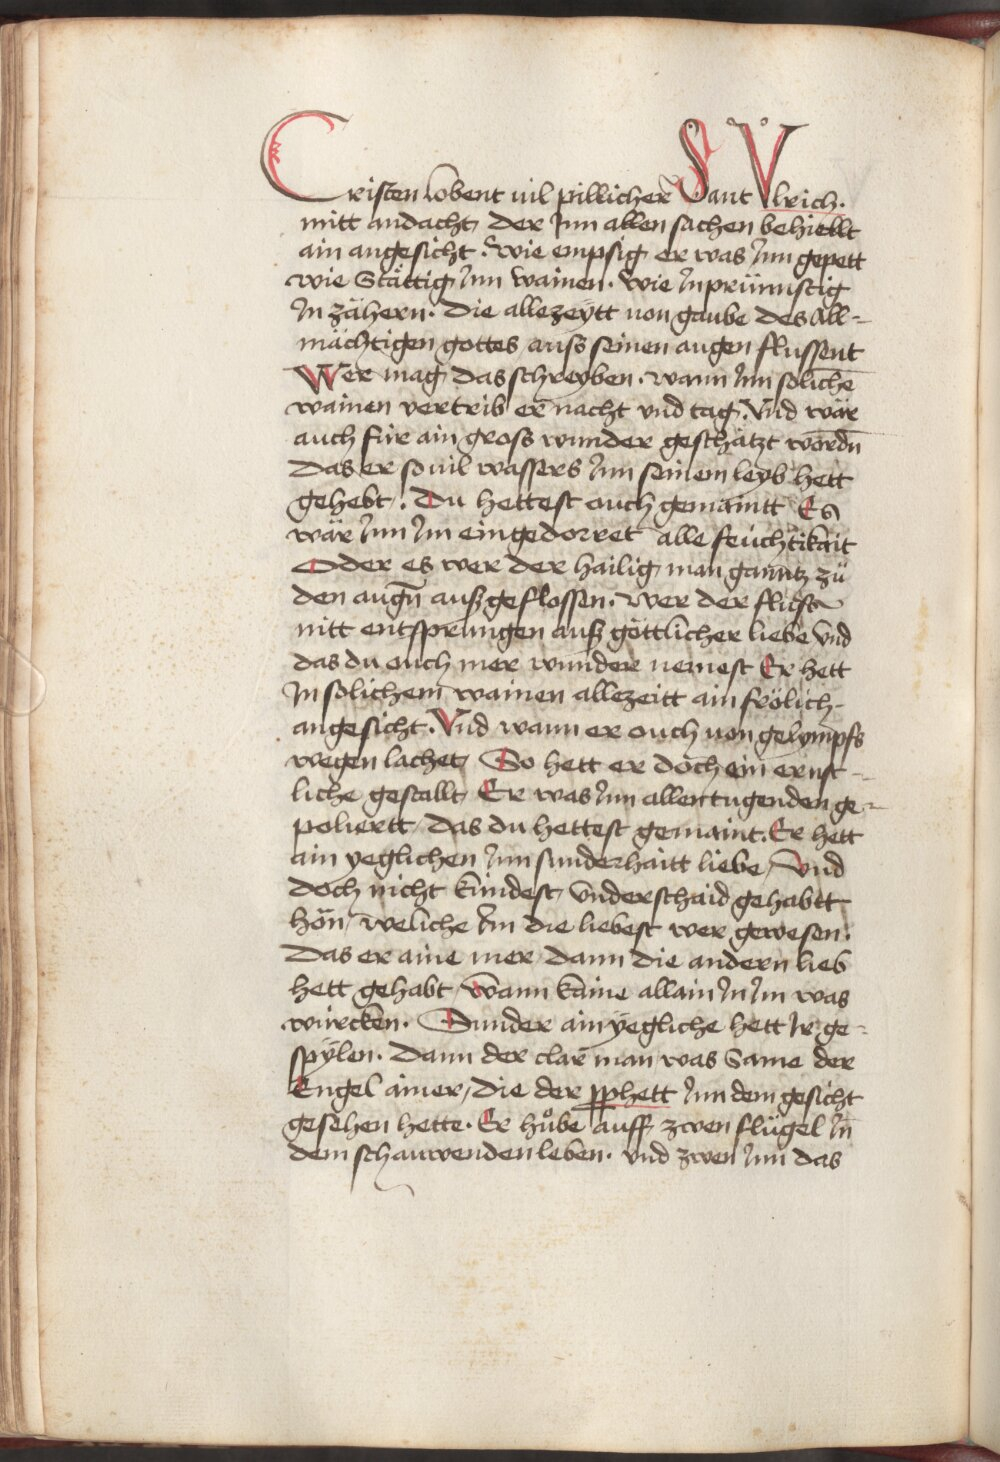 Cristen lobent uil pillicher Sant Vlrich.
mitt andacht der Inn allen sachen behiellt
ain angesicht. wie empsig er was Inn gepett
wie Stättig Inn wainen. wie Inprünnstig
In zähern. die allezeÿtt uon gaube des All-
mächtigen gottes auss seinen augen flussent
Wer mag das schreyben. wann Inn soliche͞
wainen vertrib er nacht vnd tag. Vnd wär
auch für ain gross wunder geschätzt wordn͞
das er so uil wassers Inn seinem leyb hett
gehebt. Du hettest ouch gemaintt Es
wär Inn Im eingedorret alle feüchtikait
Oder es wer der hailig man ganntz zü
den augn͞ ausz geflossen. wer der fluss
nitt entsprungen ausz göttlicher liebe vnd
das du ouch mer wunder nemest Er hett
In solichem wainen allezeitt ain frölich
angesicht. Vnd wann er ouch uon gelympfs
wegen lachet So hett er doch ein ernst-
liche gestallt Er was Inn allen tugenden ge-
poliertt das du hettest gemaint. Er hett
ain yeglichen Inn sunderhaitt liebe / Vnd
doch nicht kündest vnderschaid gehabtt
hön / weliche Im die liebest wer gewesen.
Das er aine mer dann die andern lieb
hett gehabt / Wann kaine allain In Im was
würcken. Sunder ain ÿegliche hett Ir ge-
spÿlen. Dann der clar man was Same der
Engel ainer / die der pphett Inn dem gesicht
gesehen hette. Er hůbe auff zwen flügel In͞
dem schauwenden leben. vnd zwen Inn das